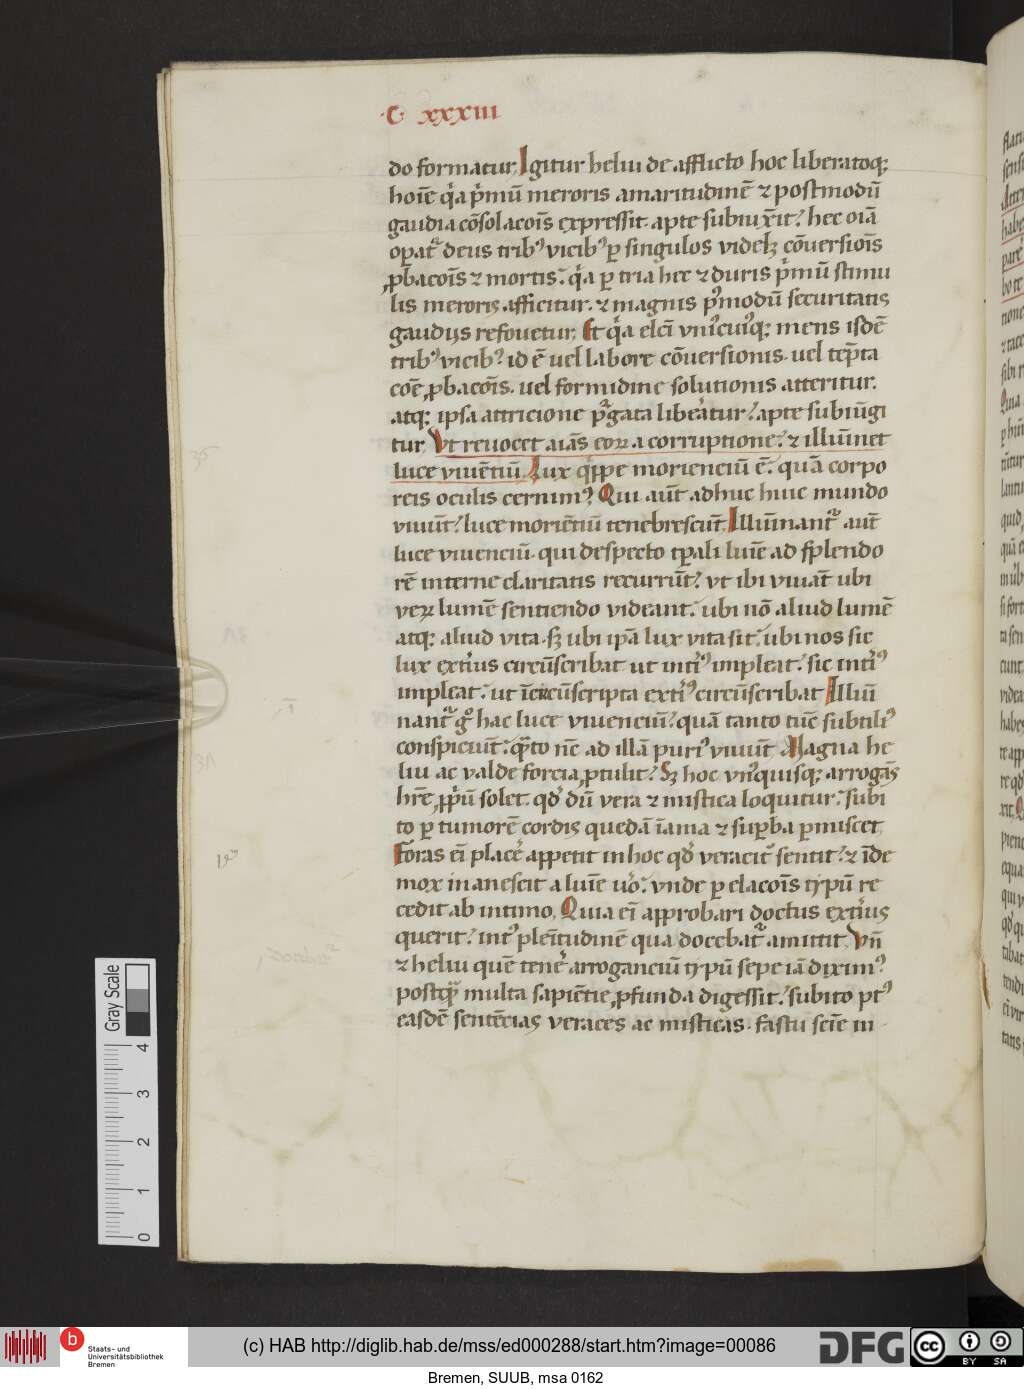 ·C· xxxiii
do formatur. Igitur heliu de afflicto hoc liberatoq;
hoīe q̇a p̄mū meroris amaritudinē ⁊ postmodū
gaudia cōsolacoīs expressit. apte subiūxīt. hec oīa
opat᷑ deus tribꝰ vicibꝰ ꝑ singulos videlꝫ cōuersioīs
ꝓbacoīs ⁊ mortis. q̇a ꝑ tria hec ⁊ duris p̄mū stimu
lis meroris afficitur. ⁊ magnis pꝰmodū securitatis
gaudijs refouetur. Et q̇a elcī vniꝰcuiꝰq; mens isdē
tribꝰ vicibꝰ. id ē uel labore cōuersionis. uel tēp̄ta
coē ꝓbacoīs. uel formidine solutionis atteritur.
atq; ipsa attricione p᷑gata liberatur. apte subiūgi
tur. Vt reuocet aīas eoꝝ a corruptione. ⁊ illumīnet
luce viuētiū. Lux q̇ppe morienciū ē. quā corpo
reis oculis cernimꝰ. Qui aūt adhuc huic mundo
viuūt. luce moriētiū tenebrescūt. Illumīnant᷑ aūt
luce viuenciū. qui despecto tꝑali lumīe ad splendo
rē interne claritatis recurrūt. vt ibi viuāt ubi
veꝝ lumē sentiendo videant. ubi nō aliud lumē
atq; aliud vita. sꝫ ubi ip̄a lux vita sit. ubi nos sic
lux extiꝰus circūscribat ut intiꝰ impleat. sic intiꝰ
impleat. ut īcircūscripta extiꝰ circūscribat. Illumī
nant᷑ gͦ hac luce viuenciū. quā tanto tūc subtiliꝰ
conspiciūt. q̄to nc̄ ad illā puriꝰ viuūt. Magna he
liu ac valde forcia ꝓtulit. Sꝫ hoc vnꝰquisq; arrogās
hr̄e ꝓpriū solet. qd̛ dū vera ⁊ mistica loquitur. subi
to ꝑ tumorē cordis quedā īania ⁊ suꝑba ꝑmiscet.
Foras eī placeꝰ appetit in hoc qd̛ veracit᷑ sentit. ⁊ īde
mox inanescit a lumīe ūo. vnde ꝑ elacoīs typū re
cedit ab intimo. Quia eī approbari doctus extiꝰus
querit. intꝰ pleītudinē qua docebat᷑ amittit. Vn̄
⁊ heliu quē teneꝰ arroganciū typū sepe iā diximꝰ
postq̄ multa sapiētie ꝓfunda digessit. subito ptꝰ
easdē sentēcias veraces ac misticas. fastu sciē in
Gray Scale
4
3
2
1
0
b Staats- und
Universitätsbibliothek
Bremen
(c) HAB http://diglib.hab.de/mss/ed000288/start.htm?image=00086
DFG
cc BY SA
Bremen, SUUB, msa 0162